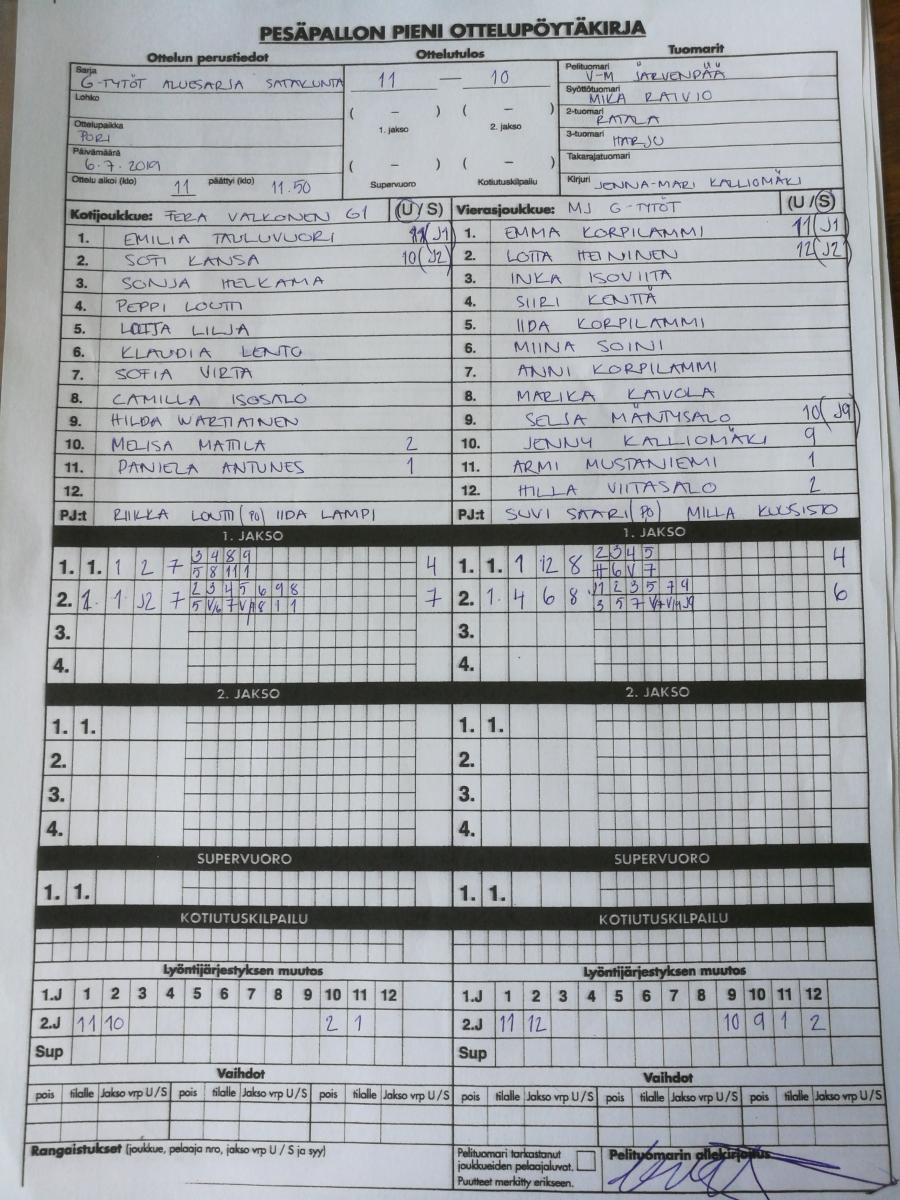 PESÄPALLON PIENI OTTELUPÖYTÄKIRJA
Ottelun perustiedot
Ottelutulos
Tuomarit
Sarja
G-TYTÖT ALUESARJA SATAKUNTA
Lohko
Ottelupaikka
PORI
Päivämäärä
6.7.2019
Ottelu alkoi (klo) 11 päättyi (klo) 11.50
11 — 10
( – ) ( – )
1. jakso 2. jakso
( – ) ( – )
Supervuoro Kotiutuskilpailu
Pelituomari
V-M JÄRVENPÄÄ
Syöttötuomari
MIKA RAIVIO
2-tuomari
RATALA
3-tuomari
HARJU
Takarajatuomari
Kirjuri JENNA-MARI KALLIOMÄKI
Kotijoukkue: FERA VALKONEN G1 (U / S)
1. EMILIA TAULUVUORI 11 (J1)
2. SOFI KANSA 10 (J2)
3. SONJA HELKAMA
4. PEPPI LOUTTI
5. LOTTA LILJA
6. KLAUDIA LENTO
7. SOFIA VIRTA
8. CAMILLA ISOSALO
9. HILDA WARTIAINEN
10. MELISA MATTILA 2
11. DANIELA ANTUNES 1
12.
PJ:t RIIKKA LOUTTI (PO) IIDA LAMPI
Vierasjoukkue: MJ G-TYTÖT (U / S)
1. EMMA KORPILAMMI 11 (J1)
2. LOTTA HEININEN 12 (J2)
3. INKA ISOVIITA
4. SIIRI KENTTÄ
5. IIDA KORPILAMMI
6. MIINA SOINI
7. ANNI KORPILAMMI
8. MARIKA KAIVOLA
9. SELJA MÄNTYSALO 10 (J9)
10. JENNY KALLIOMÄKI 9
11. ARMI MUSTANIEMI 1
12. HILLA VIITASALO 2
PJ:t SUVI SAARI (PO) MILLA KUUSISTO
1. JAKSO
1. 1. 1 2 7 3 4 8 9 4
5 8 11 1
2. 1. 1 J2 7 2 3 4 5 6 9 8 7
5 V/6 7 8 1 1
3.
4.
1. JAKSO
1. 1. 1 12 8 2 3 4 5 4
6 V 7
2. 1. 4 6 8 J1 2 3 5 7 9 6
3 5 7 J9
3.
4.
2. JAKSO
1. 1.
2.
3.
4.
2. JAKSO
1. 1.
2.
3.
4.
SUPERVUORO
1. 1.
SUPERVUORO
1. 1.
KOTIUTUSKILPAILU
KOTIUTUSKILPAILU
Lyöntijärjestyksen muutos
1.J 1 2 3 4 5 6 7 8 9 10 11 12
2.J 11 10 2 1
Sup
Lyöntijärjestyksen muutos
1.J 1 2 3 4 5 6 7 8 9 10 11 12
2.J 11 12 10 9 1 2
Sup
Vaihdot
pois tilalle Jakso vrp U / S pois tilalle Jakso vrp U / S pois tilalle Jakso vrp U / S
Vaihdot
pois tilalle Jakso vrp U / S pois tilalle Jakso vrp U / S pois tilalle Jakso vrp U / S
Rangaistukset (joukkue, pelaaja nro, jakso vrp U / S ja syy)
Pelituomari tarkastanut
joukkueiden pelaajaluvat.
Puutteet merkitty erikseen.
Pelituomarin allekirjoitus